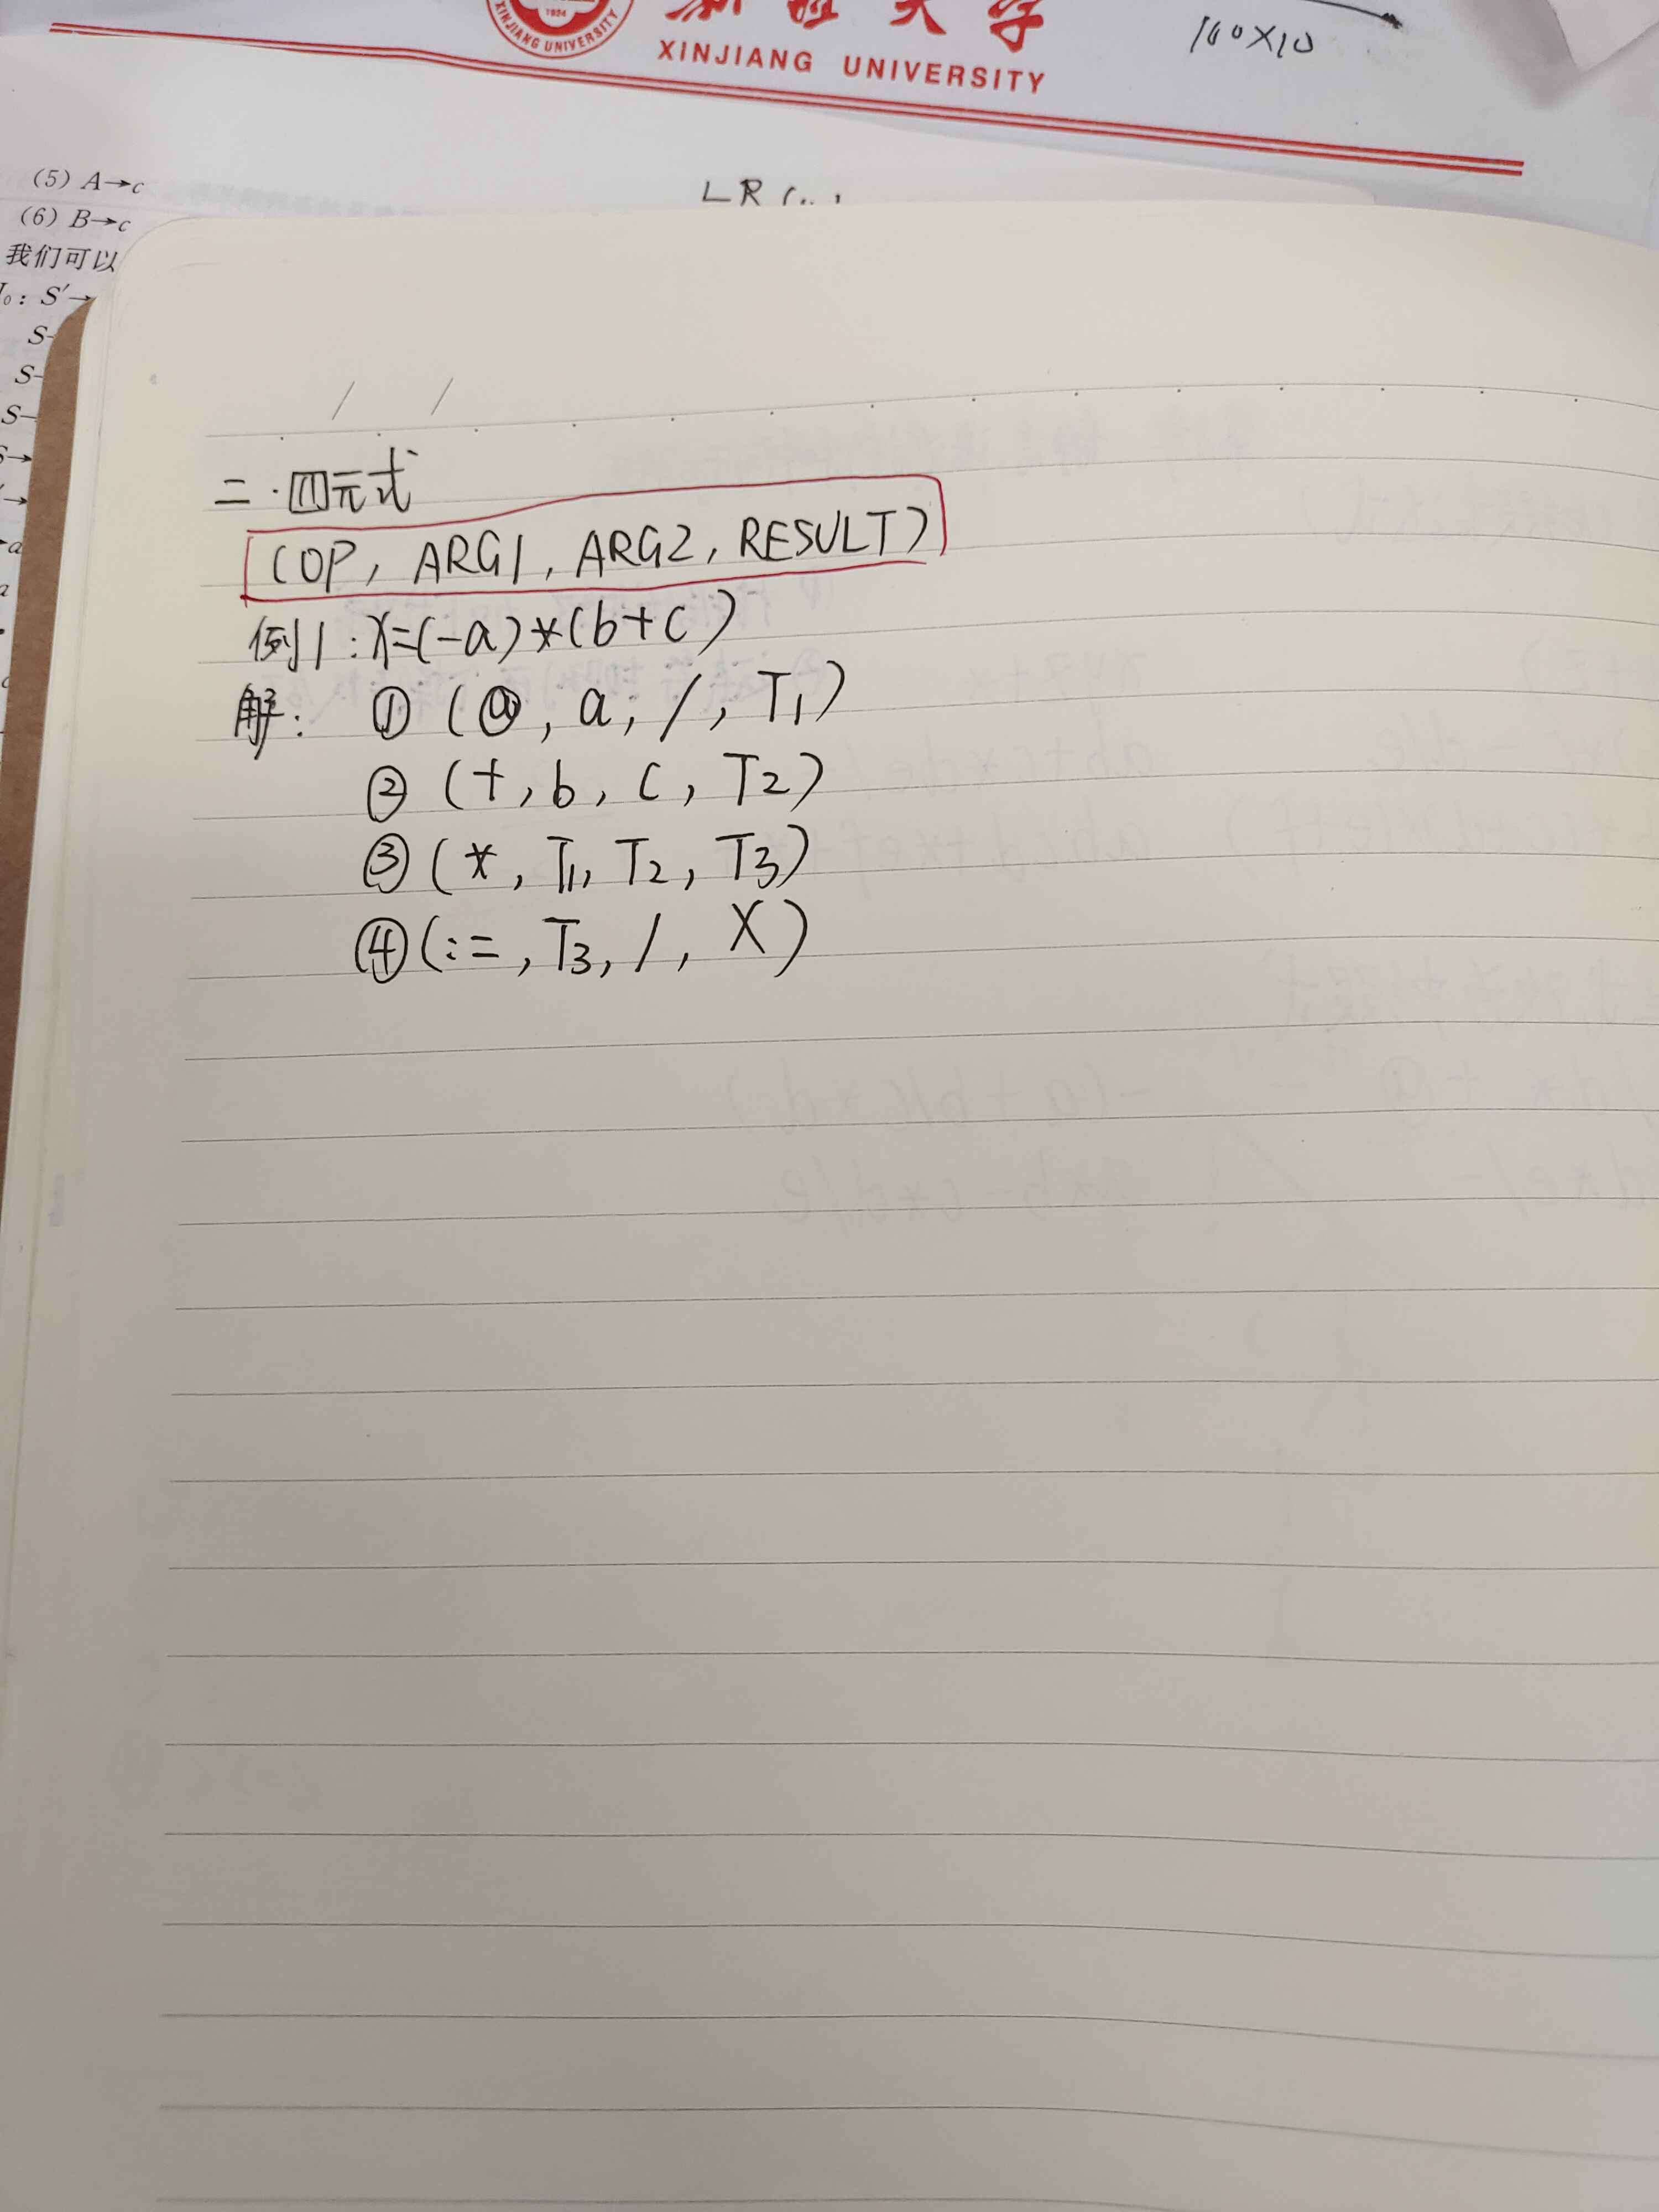 新疆大学
XINJIANG UNIVERSITY
XINJIANG UNIVERSITY
1924
100×10
(5) A→c
(6) B→c
我们可以
S′→
S
S
S
LR (
二.四元式
(OP, ARG1, ARG2, RESULT)
例1:X=(-a)*(b+c)
解: ① (@, a, /, T₁)
② (+, b, c, T2)
③ (*, T₁, T₂, T3)
④ (:=, T₃, /, X)